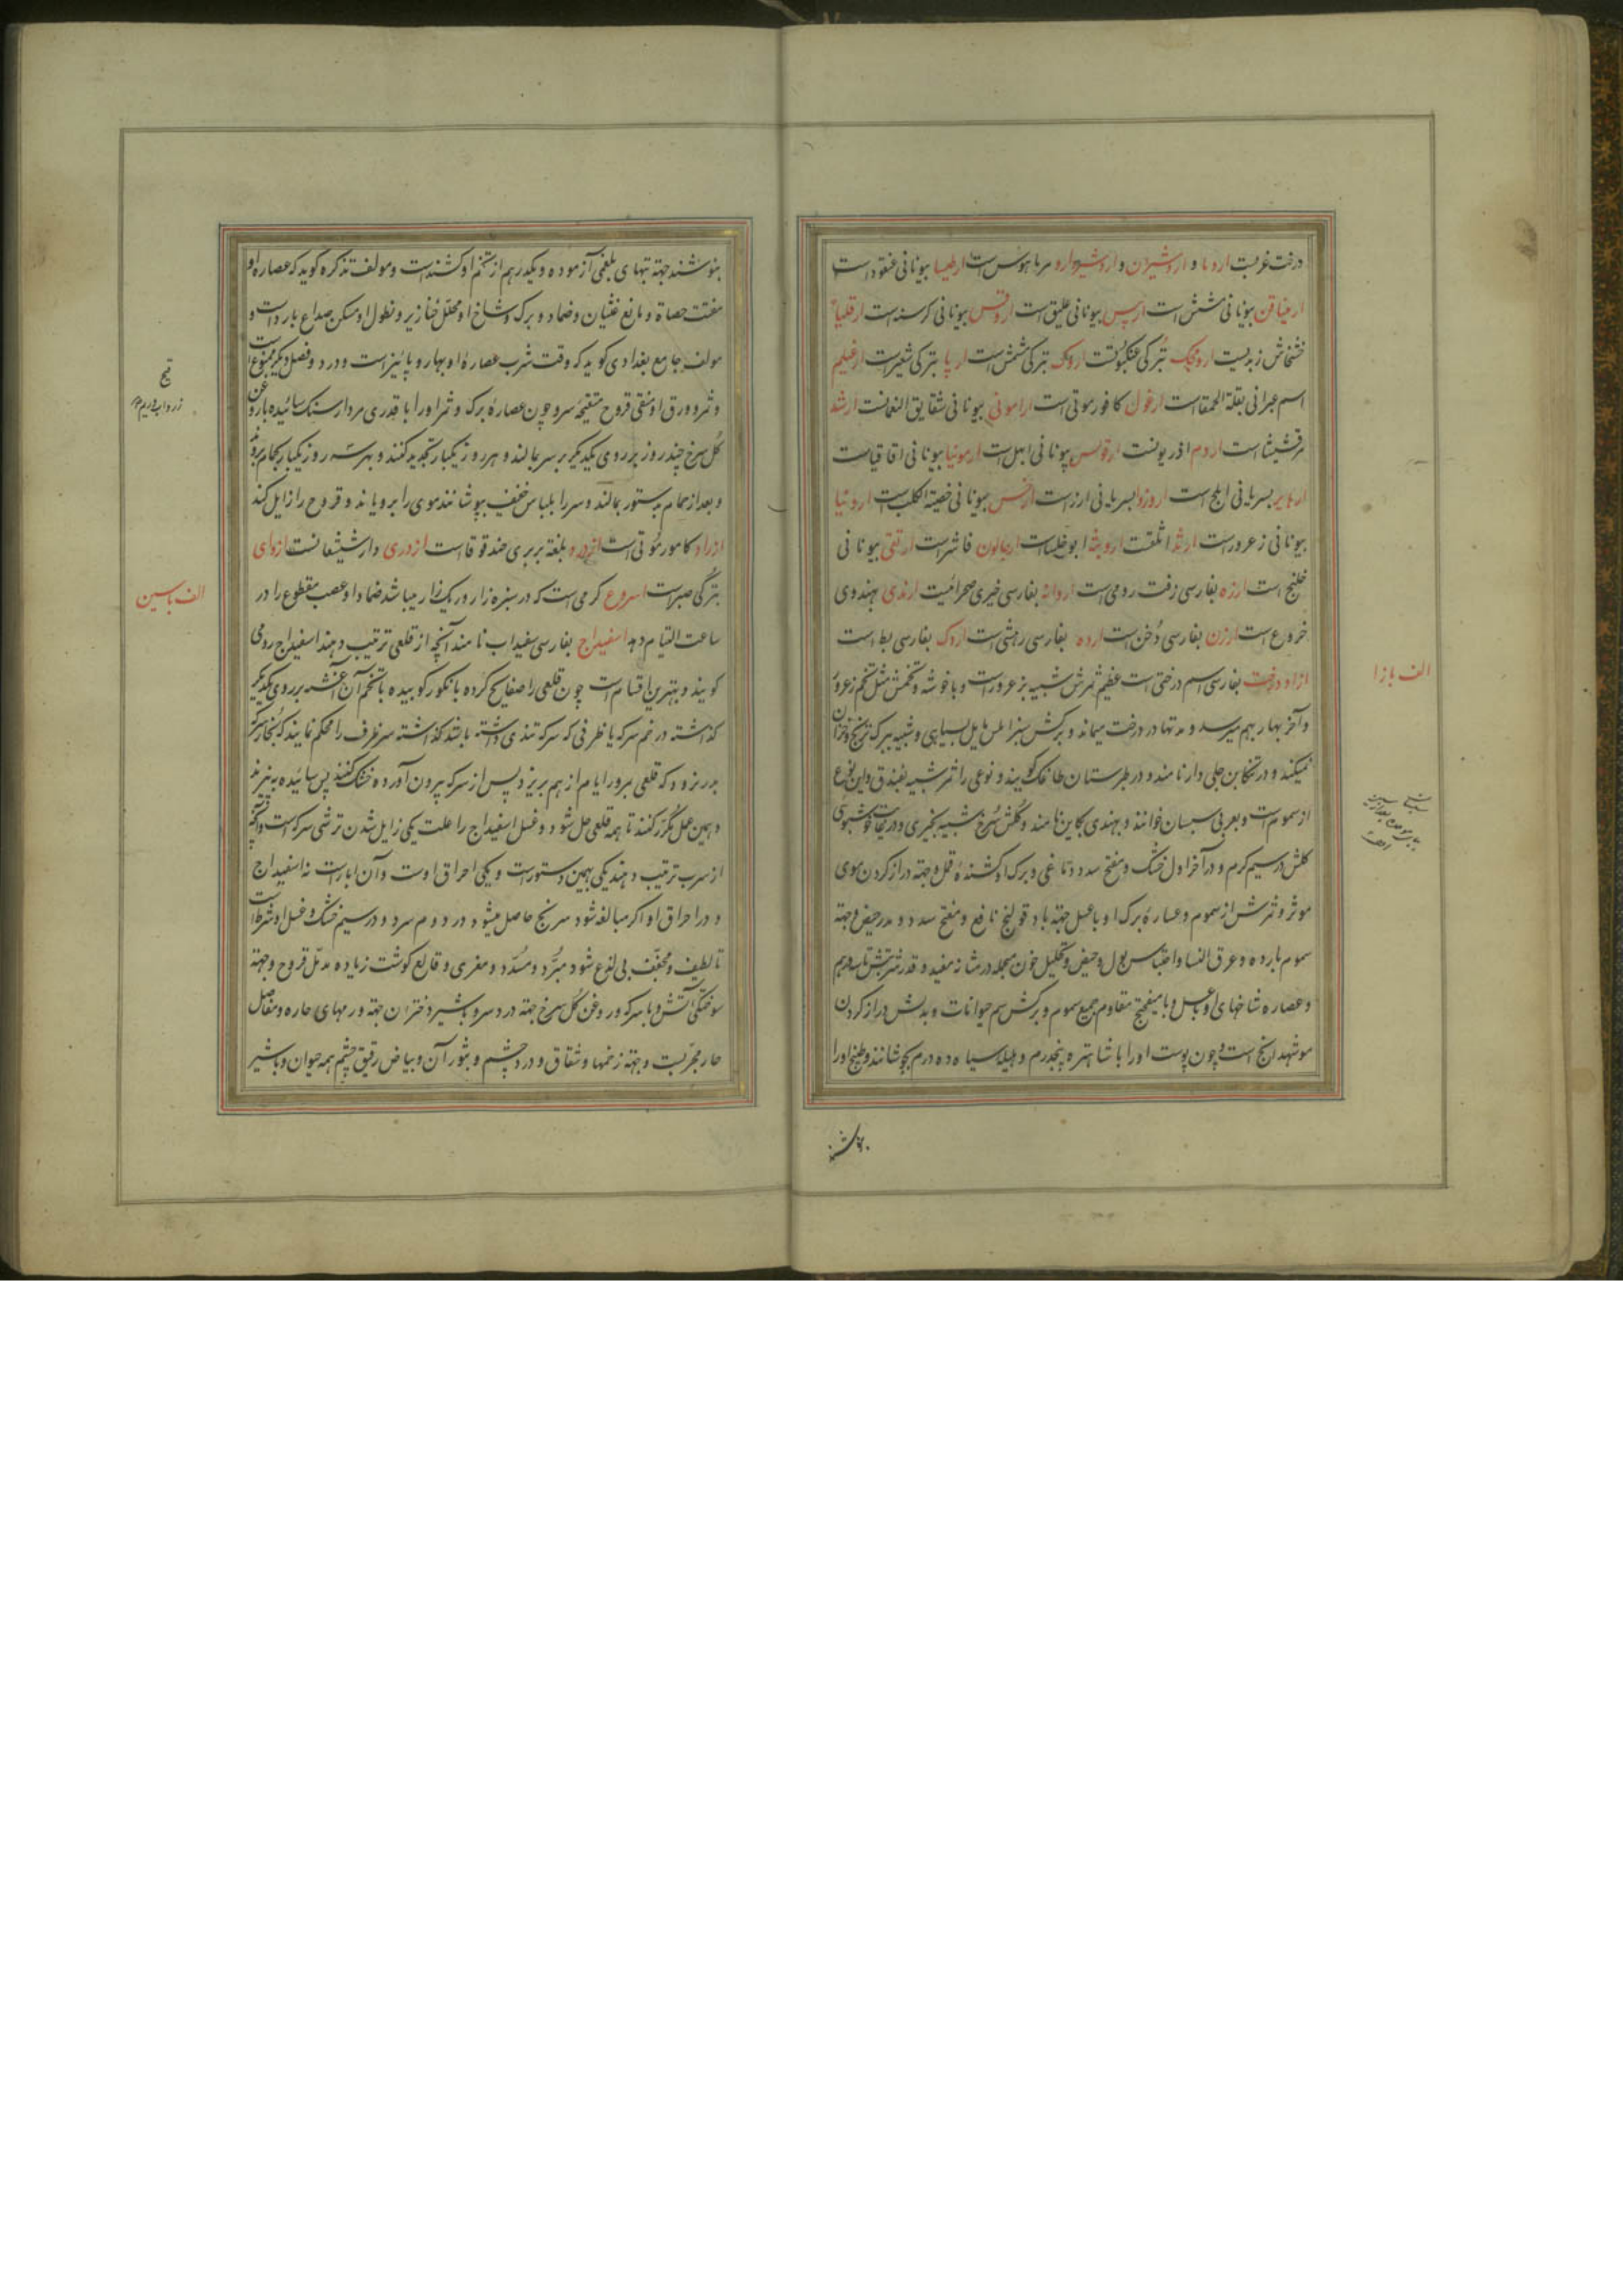 درخت غربست اردبا و اردشیران و اردشیردارو مرماهوس است ارطیسا بیونانی عنقود است
ارمیناقن بیونانی مشمش است ارپس بیونانی علیق است اروقس بیونانی کرسنه است ارقلیا
خشخاش زبدیست ارومچک بترکی عنکبوتست اروک بترکی مشمش است ارپا بترکی شعیر است
اسم عبرانی بقلة الحمقا است ارغول کافور موتی است ارامونی بیونانی شقایق النعمانست ارشد
مرقشیثا است اردم اذریونست ارقوس بیونانی ابهل است ارمونیا بیونانی اقاقیاست
بسریانی ابلج است اروزوا بسریانی ارز است بیونانی خصیة الکلب است اردنیا
بیونانی زعرور است ارثد اثلقست اروبثه ابوخلساست ارجالون فاشراست ارتقی بیونانی
خلنج است ارزه بفارسی زفت رومی است اردانه بفارسی خیری صحرائیست ارندی بهندوی
خروع است ارزن بفارسی دخن است ارده بفارسی رهشی است اردک بفارسی بط است
الف بازا
ازاد درخت بفارسی اسم درختی است عظیم ثمرش شبیه بزعرور است و باخوشه و تخمش مثل تخم زعرور
و آخر بهار بهم میرسد و مدتها در درخت میماند و برکش سبز املس مایل بسیاهی و شبیه ببرک ترنج و خزان
نمیکند و در تنکابن جلی دار نامند و در طبرستان طاخک کویند و نوعی را ثمر شبیه بفندق و این نوع
از سموم است و بعربی سیسبان خوانند و بهندی بکاین نامند و کلش سرخ شبیه بخیری و در غایت خوشبوئی
کلش در سیم کرم و در آخر اول خشک و مفتح سدد دماغی و برک او کشنده قمل و جهته دراز کردن موی
موثر و ثمرش از سموم و عصاره برک او با عسل جهته باد قولنج نافع و مفتح سدد و مدر حیض و جهته
سموم بارده و عرق النسا و احتباس بول و حیض و تحلیل خون منجمد در مثانه مفید و قدر شربتش تا سه درهم
و عصاره شاخهای او با عسل و با میفختج مقاوم جمیع سموم و برکش سم حیوانات و بدلش در دراز کردن
مو شهدانج است و چون پوست او را با شاهتره پنجدرم و هلیله سیاه ده درم بجوشانند و طبیخ او را
بنوشند جهته تبهای بلغمی آزموده و یکدرهم از تخم او کشنده است و مولف تذکره کوید که عصاره او
مفتت حصاة و مانع غثیان و ضماد و برک و شاخ او محلل خنازیر و نطول او مسکن صداع بارد است و
مولف جامع بغدادی کوید که وقت شرب عصاره او بهار و پائیز است و در دو فصل دیکر ممنوع است
و ثمر و ورق او منقی قروح متقیحه سر و چون عصاره برک و ثمر او را با قدری مردار سنک سائیده با روغن
کل سرخ چند روز بر روی یکدیکر بر سر بمالند و هر روز یکبار تجدید کنند و بهر سه روز یکبار بحمام بروند
و بعد از حمام بدستور بمالند و سر را بلباس خفیف بپوشانند موی را برویاند و قروح را زایل کند
ازراد کامور موتی است ازدرد بلغة بربری حندقوقا است ازدری دارشیشعانست ازوای
بترکی صبر است اسروع کرمی است که در سبزه زار و ریک زار میباشد ضماد او عصب مقطوع را در
الف باسین
ساعت التیام دهد اسفیداج بفارسی سفیداب نامند آنچه از قلعی ترتیب دهند اسفیداج رومی
کویند و بهترین اقسام است چون قلعی را صفایح کرده با انکور کوبیده با تخم آن آغشته بر روی یکدیکر
کذاشته در خم سرکه یا ظرفی که سرکه تندی داشته باشد کذاشته سر ظرف را محکم نمایند که بخار سرکه
بدر نرود که قلعی بمرور ایام از هم بریزد پس از سرکه بیرون آورده خشک کنند پس سائیده به بیزند
و همین عمل مکرر کنند تا همه قلعی حل شود و غسل اسفیداج را علت یکی زایل شدن ترشی سرکه است و آنچه
از سرب ترتیب دهند یکی بهمین دستور است و یکی احراق اوست و آن ابار است نه اسفیداج
و در احراق او اکر مبالغه شود سرنج حاصل میشود در دوم سرد و در سیم خشک و غسل او شرط است
تا لطیف و مجفف بی لذع شود و مبرد و مسدد و مغری و قالع کوشت زیاده مدمل قروح و جهته
سوختکی آتش و با سرکه و روغن کل سرخ جهته درد سر و با شیر دختران جهته ورمهای حاره و مفاصل
حار مجربست و جهته زخمها و شقاق و درد چشم و بثور آن و بیاض رقیق چشم همه حیوان و با شیر